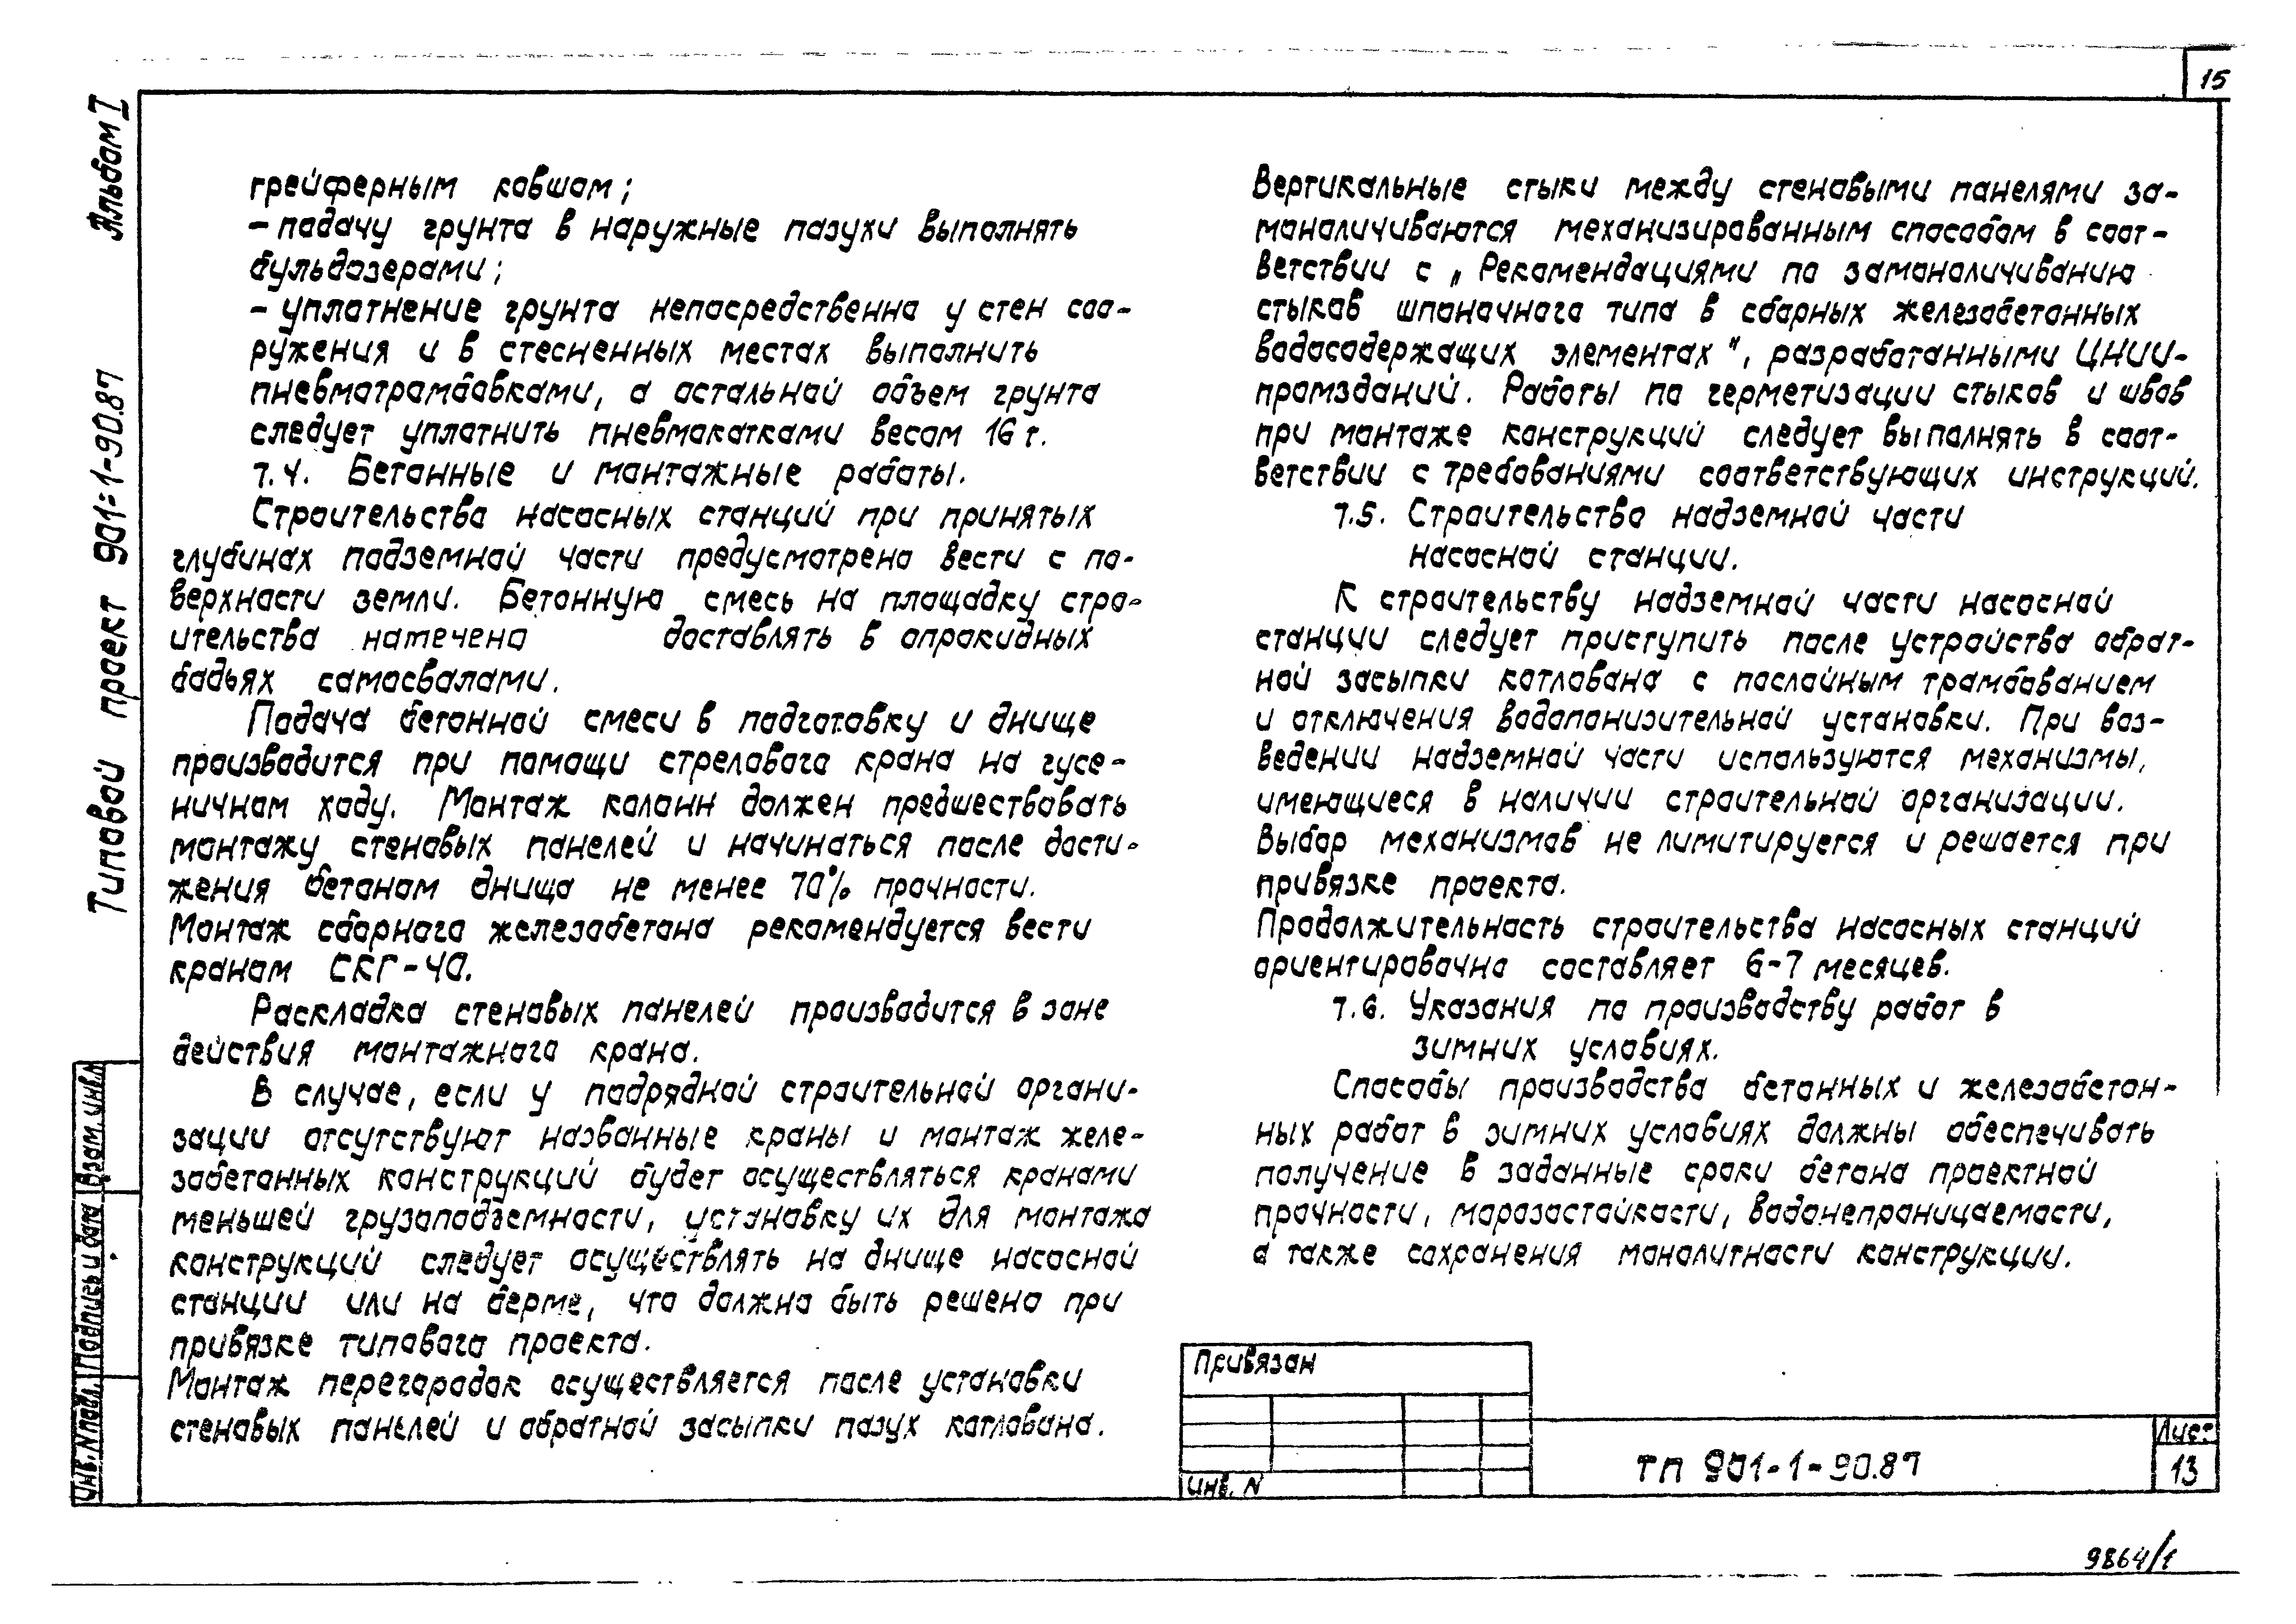 15
Альбом I
Типовой проект 901-1-90.87
грейферным ковшом;
– подачу грунта в наружные пазухи выполнять
бульдозерами;
– уплотнение грунта непосредственно у стен соо-
ружения и в стесненных местах выполнить
пневмотрамбовками, а остальной объем грунта
следует уплотнить пневмокатками весом 16 т.
7.4. Бетонные и монтажные работы.
Строительство насосных станций при принятых
глубинах подземной части предусмотрено вести с по-
верхности земли. Бетонную смесь на площадку стро-
ительства намечено доставлять в опрокидных
бадьях самосвалами.
Подача бетонной смеси в подготовку и днище
производится при помощи стрелового крана на гусе-
ничном ходу. Монтаж колонн должен предшествовать
монтажу стеновых панелей и начинаться после дости-
жения бетоном днища не менее 70% прочности.
Монтаж сборного железобетона рекомендуется вести
краном СКГ-40.
Раскладка стеновых панелей производится в зоне
действия монтажного крана.
В случае, если у подрядной строительной органи-
зации отсутствуют названные краны и монтаж желе-
зобетонных конструкций будет осуществляться кранами
меньшей грузоподъемности, установку их для монтажа
конструкций следует осуществлять на днище насосной
станции или на берме, что должно быть решено при
привязке типового проекта.
Монтаж перегородок осуществляется после установки
стеновых панелей и обратной засыпки пазух котлована.
Вертикальные стыки между стеновыми панелями за-
моноличиваются механизированным способом в соот-
ветствии с „Рекомендациями по замоноличиванию
стыков шпоночного типа в сборных железобетонных
водосодержащих элементах", разработанными ЦНИИ-
промзданий. Работы по герметизации стыков и швов
при монтаже конструкций следует выполнять в соот-
ветствии с требованиями соответствующих инструкций.
7.5. Строительство надземной части
насосной станции.
К строительству надземной части насосной
станции следует приступить после устройства обрат-
ной засыпки котлована с послойным трамбованием
и отключения водопонизительной установки. При воз-
ведении надземной части используются механизмы,
имеющиеся в наличии строительной организации.
Выбор механизмов не лимитируется и решается при
привязке проекта.
Продолжительность строительства насосных станций
ориентировочно составляет 6-7 месяцев.
7.6. Указания по производству работ в
зимних условиях.
Способы производства бетонных и железобетон-
ных работ в зимних условиях должны обеспечивать
получение в заданные сроки бетона проектной
прочности, морозостойкости, водонепроницаемости,
а также сохранения монолитности конструкции.
Взам. инв. №
Подпись и дата
Инв. N подл.
Привязан
Инв. N
ТП 901-1-90.87
Лист
13
9864/1